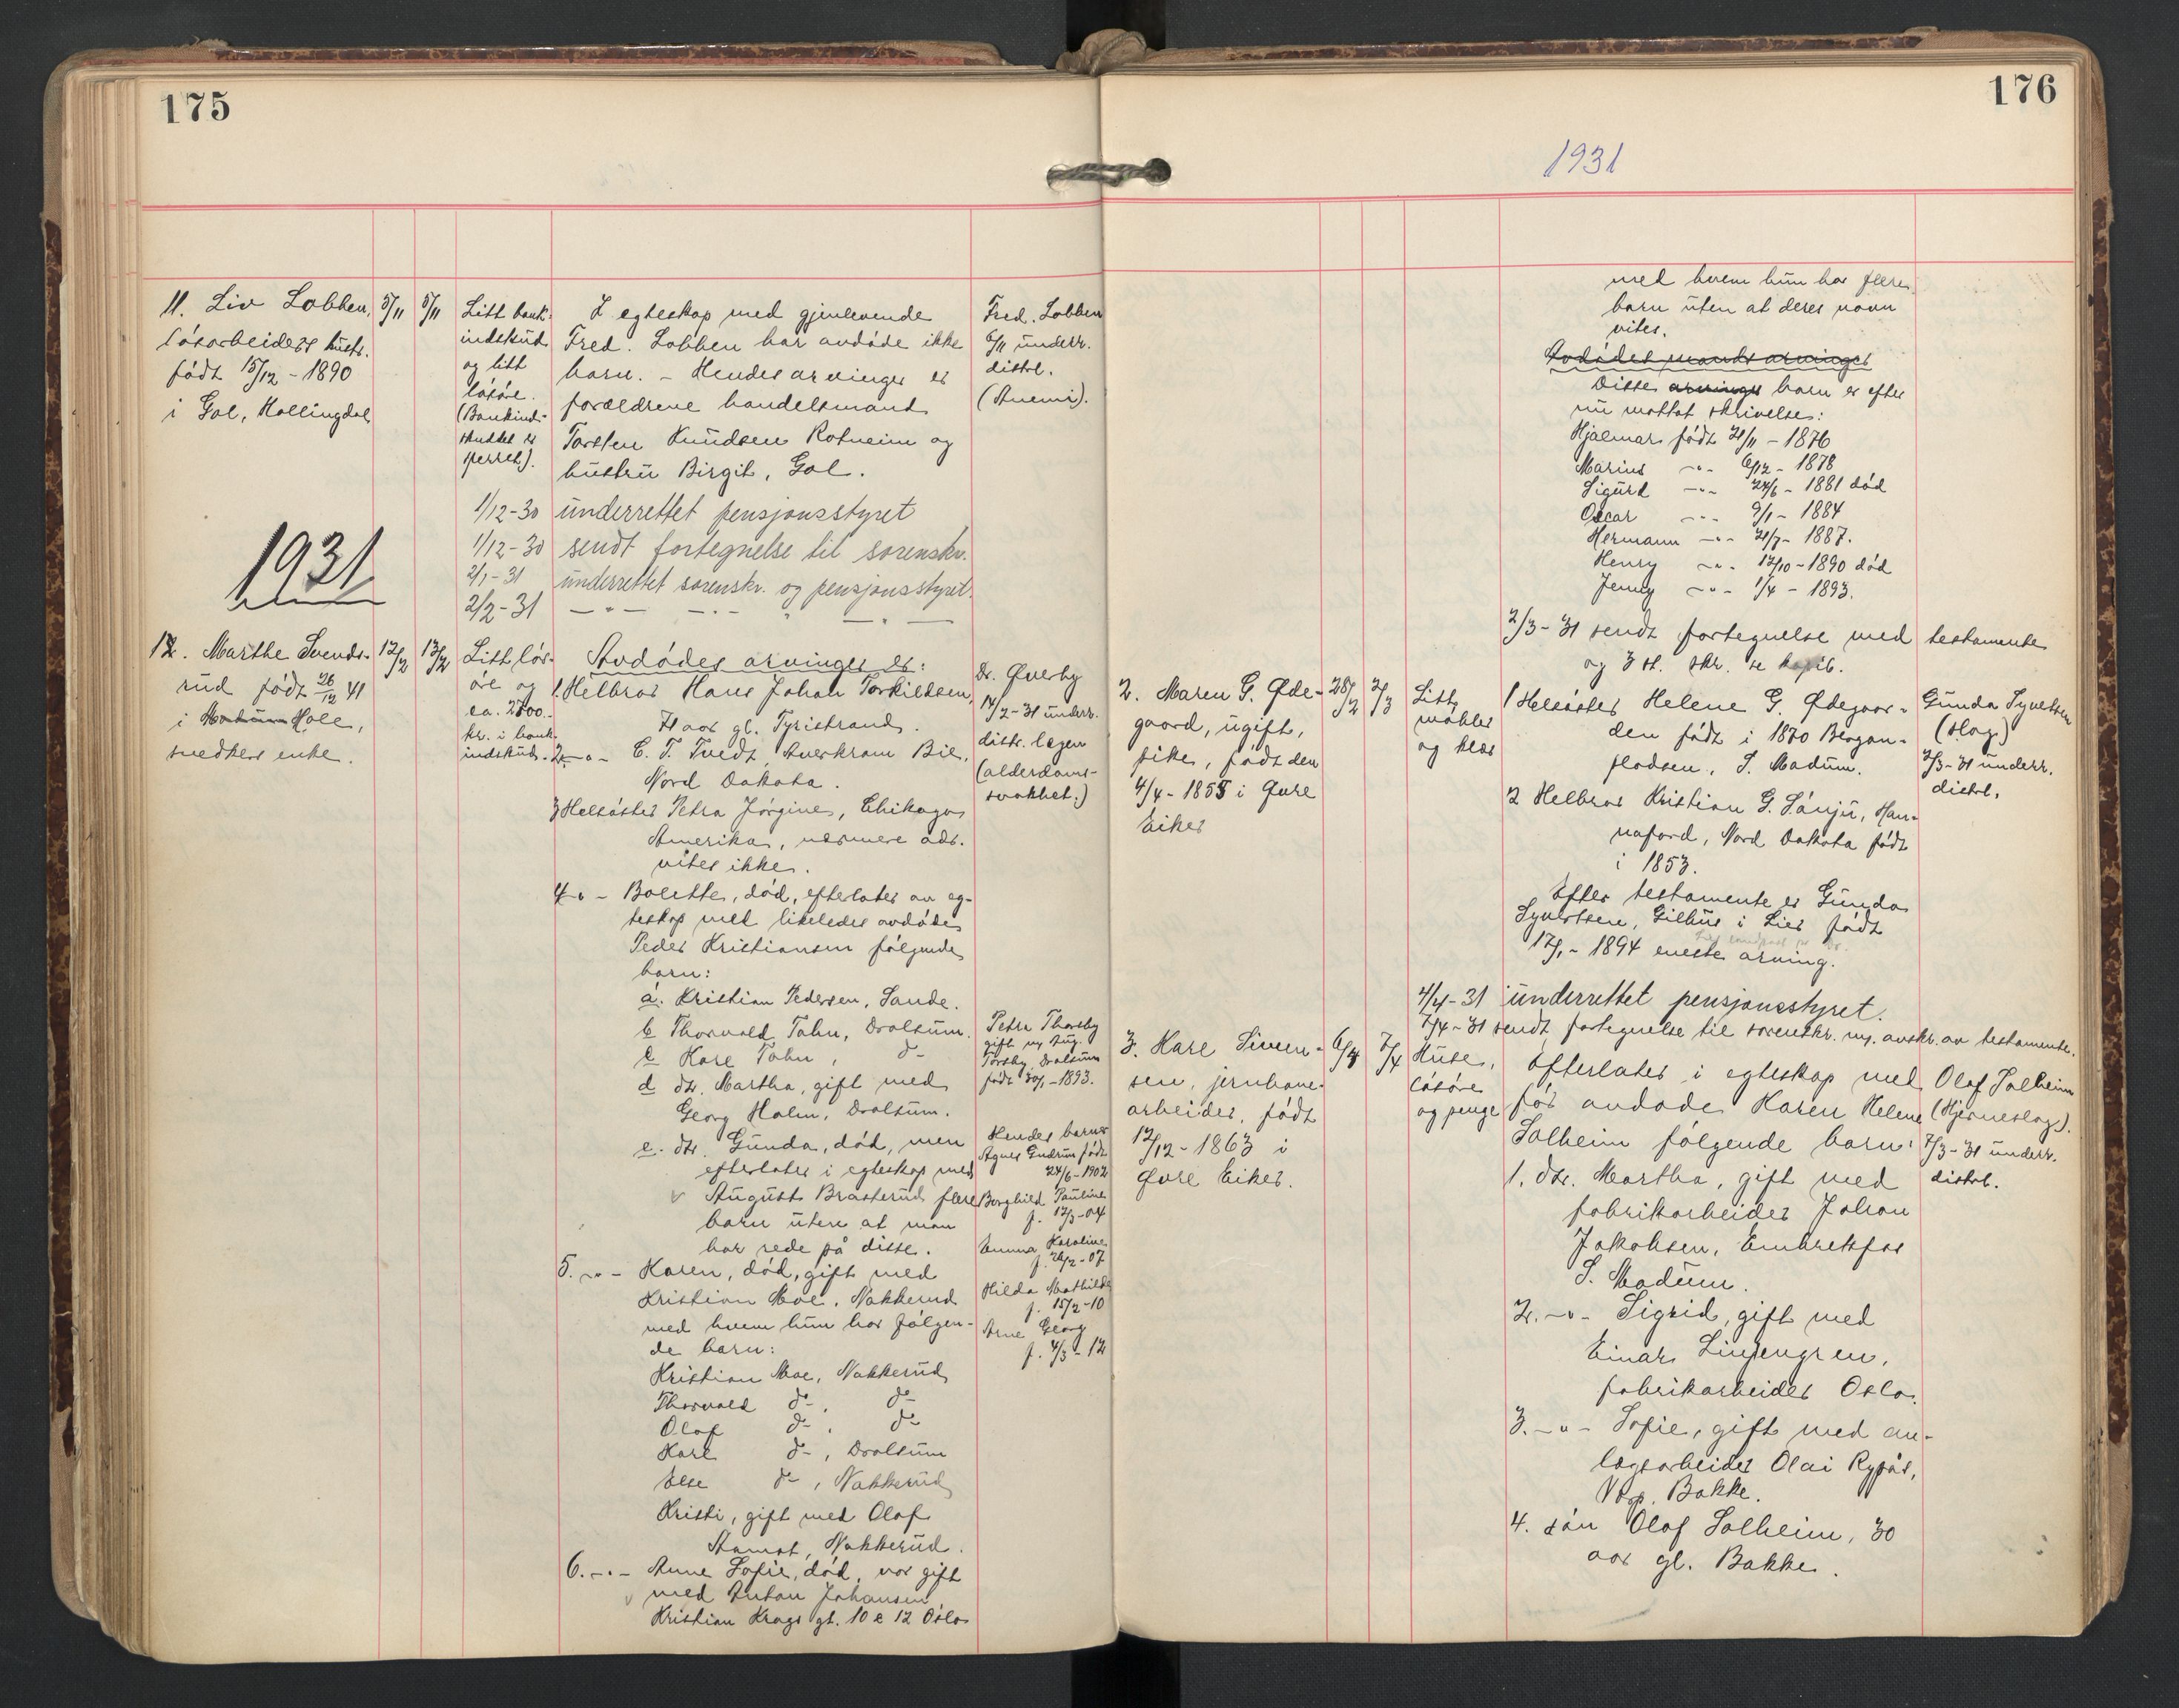 175
11. Liv Lobben,
løsarbeiders hustr.
født 15/12 - 1890
i Gol, Hallingdal
5/11
5/11
Litt bank-
indskud
og litt
løsøre.
(Bankind-
skuddet er
sperret).
I egteskap med gjenlevende
Fred. Lobben har avdøde ikke
barn. - Hendes arvinger er
forældrene handelsmand
Torsten Knudsen Rotneim og
hustru Birgit, Gol.
Fred. Lobben
6/11 underr.
distrl.
(Anemi).
1/12-30 underrettet pensjonsstyret
1/12-30 sendt fortegnelse til sorenskr.
2/1-31 underrettet sorenskr. og pensjonsstyret.
2/2-31 - " - - " - " - " -
1931
12. Marthe Svends-
rud født 26/12 41
i Modum Hole,
snedkers enke.
12/2
13/2
Litt løs-
øre og
ca. 2700.-
kr. i bank-
indskud.
Avdødes arvinger er:
1. Helbror Hans Johan Torkildsen,
71 aar gl. Tyristrand.
2 -"- C. T. Tvedt, Bie,
Nord Dakota.
3 Helsøster Petra Jørgine, Chikago
Amerika, nærmere adr.
vites ikke.
4 -"- Bolette, død, efterlater av eg-
teskap med likeledes avdøde
Peder Kristiansen følgende
barn:
a. Kristian Pedersen, Sande.
b Thorvald Tahn, Drolsum.
c Karl Tahn, do-
d dtr. Martha, gift med
Georg Holm, Drolsum.
e. dtr. Gunda, død, men
efterlater i egteskap med
August Braaterud flere
barn uten at man
har rede på disse.
5. -"- Karen, død, gift med
Kristian Moe, Nakkerud
med hvem hun har følgen-
de barn:
Kristian Moe, Nakkerud
Thorvald do-, do-
Olaf do-, do-
Karl do-, Drolsum
Else do-, Nakkerud
Kristi, gift med Olaf
Nakkerud.
6. -"- Anne Sofie, død, var gift
med Anton Johansen
Kristian Krags gt. 10 e 12 Oslo
Dr. Øverby
14/2-31 underr.
distr. lægen
(alderdoms-
svakhet.)
Petra Thorsby
gift m. Aug.
Torsby Drolsum
født 30/1-1893.
Hendes barn:
Agnes Gudrun født
24/6-1902
Borghild Pauline
f. 12/3-04
Emma Karoline
f. 26/2-07
Hilda Mathilde
f. 15/2-10
Arne Georg
f. 4/3-12
176
1931
med hvem hun har flere
barn uten at deres navn
vites.
Avdødes mands arvinger
Disse arvinger barn er efter
nu mottat skrivelse:
Hjalmar født 21/11 - 1876
Marius -"- 6/12 - 1878
Sigurd -"- 24/6 - 1881 død
Oscar -"- 9/1 - 1884
Hermann -"- 21/7 - 1887.
Henry -"- 12/10 - 1890 død
Jenny -"- 1/4 - 1893.
2/3-31 sendt fortegnelse med testamente
og 3 st. skr. se kopib.
2. Maren G. Øde-
gaard, ugift,
pike, født den
4/4 - 1855 i Øvre
Eiker
28/2
2/3
Litt
møbler
og klær
1 Helsøster Helene G. Ødegaar-
den født i 1870 Bergan-
flodsen, S. Modum.
2 Helbror Kristian G. Sånju, Han-
naford, Nord Dakota født
i 1853.
Efter testamente er Gunda
Syvertsen, Gilhus i Lier født
17/1 - 1894 eneste arving.
Gunda Syvertsen
(slag)
2/3-31 underr.
distrl.
4/4-31 underrettet pensjonsstyret.
7/4-31 sendt fortegnelse til sorenskr. m. avskr. av testamente.
3. Karl Simen-
sen, jernbane-
arbeider, født
12/12 - 1863 i
Øvre Eiker.
6/4
7/4
Huse,
løsøre
og penge
Efterlater i egteskap med
før avdøde Karen Helene
Solheim følgende barn:
1. dtr. Martha, gift med
fabrikarbeider Johan
Jakobsen, Embretsfos
S. Modum.
2. -"- Sigrid, gift med
Einar Linjengren,
fabrikarbeider Oslo.
3. -"- Sofie, gift med an-
lægsarbeider Olai Rypås,
Vop. Bakke.
4. søn Olaf Solheim, 30
aar gl. Bakke.
Olaf Solheim
(Hjerneslag).
7/3-31 underr.
distrl.